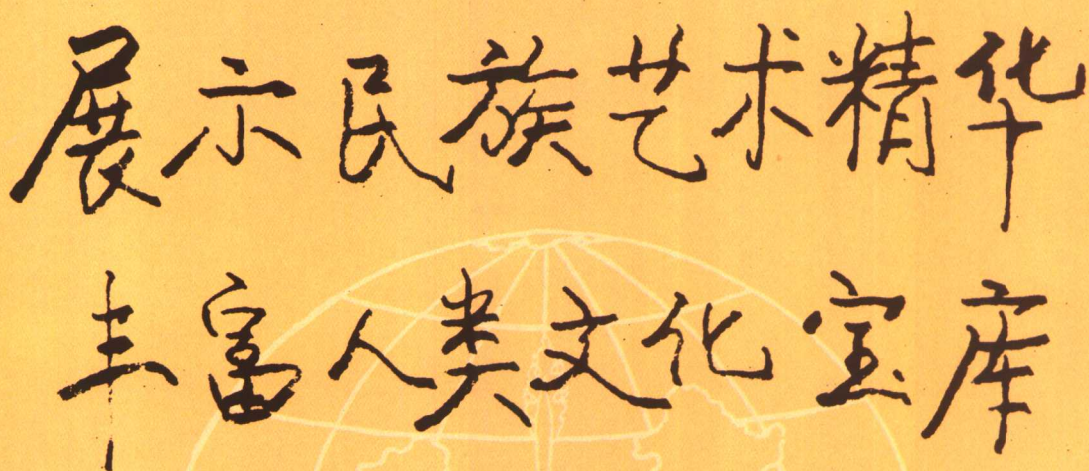 展示民族艺术精华
丰富人类文化宝库